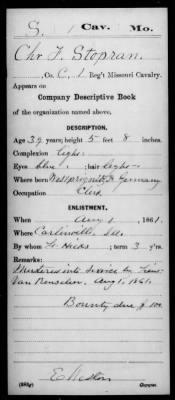 S. 1 Cav. Mo.
Chr. F. Stopran.
, Co. C, 1 Reg't Missouri Cavalry.
Appears on
Company Descriptive Book
of the organization named above.
DESCRIPTION.
Age 39 years; height 5 feet 8 inches.
Complexion Light
Eyes Blue; hair Light
Where born Germany
Occupation Clerk
ENLISTMENT.
When Aug 1, 1861.
Where Carlinville, Ills.
By whom H. Hicks; term 3 y'rs.
Remarks:
Mustered into service by Lieut
Van Rensselaer Aug 1, 1861.
Bounty due $100
Copyist.